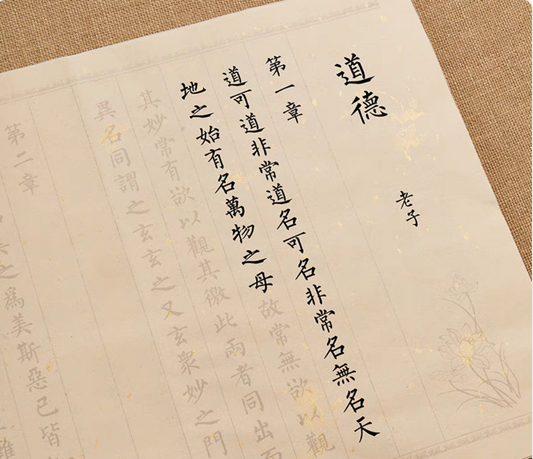 道德
老子
第一章
道可道非常道名可名非常名無名天
地之始有名萬物之母故常無欲以觀
其妙常有欲以觀其徼此兩者同出而
異名同謂之玄玄之又玄衆妙之門
第二章
之爲美斯惡已皆